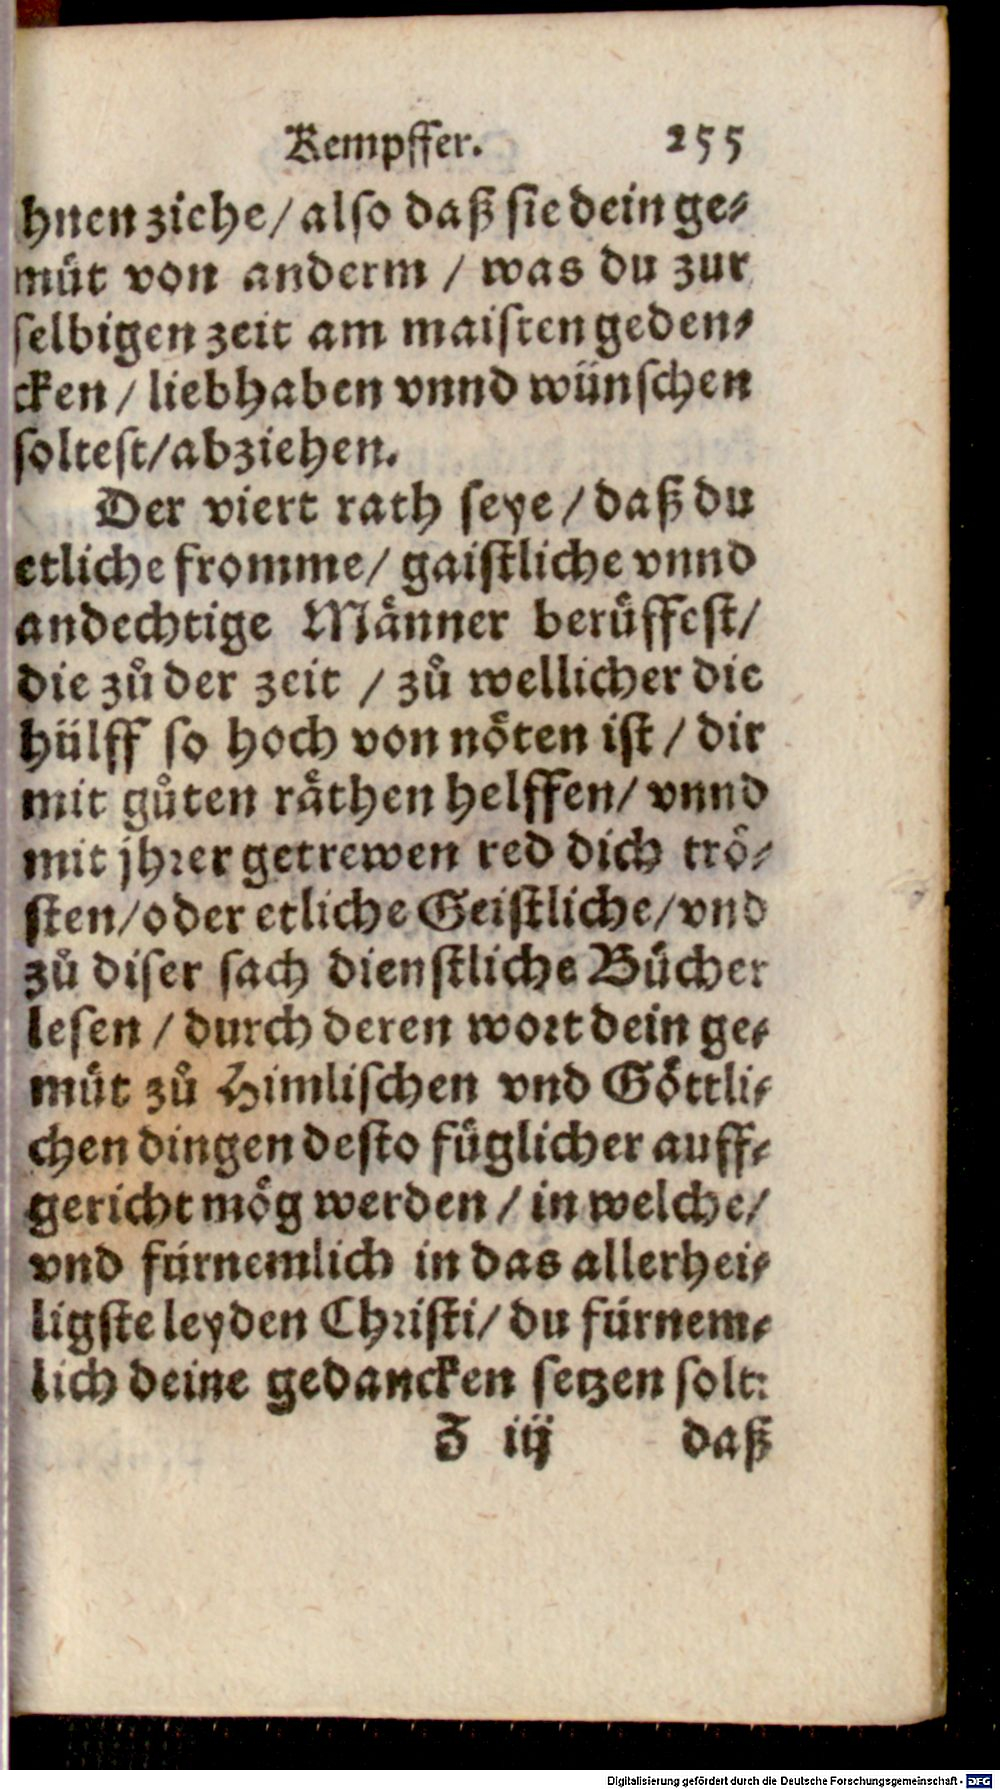 Kempffer. 255
hnen ziehe / also daß sie dein ge⸗
muͤt von anderm / was du zur
selbigen zeit am maisten geden⸗
cken / liebhaben vnnd wünschen
soltest / abziehen.
Der viert rath seye / daß du
etliche fromme / gaistliche vnnd
andechtige Maͤnner beruͤffest /
die zuͦ der zeit / zuͦ wellicher die
huͤlff so hoch von noͤten ist / dir
mit guͦten raͤthen helffen / vnnd
mit jhrer getrewen red dich troͤ⸗
sten / oder etliche Geistliche / vnd
zuͦ diser sach dienstliche Buͤcher
lesen / durch deren wort dein ge⸗
muͤt zuͦ Himlischen vnd Goͤttli⸗
chen dingen desto fuͤglicher auff⸗
gericht moͤg werden / in welche /
vnd fürnemlich in das allerhei⸗
ligste leyden Christi / du fürnem⸗
lich deine gedancken setzen solt:
Z iij daß
Digitalisierung gefördert durch die Deutsche Forschungsgemeinschaft - DFG